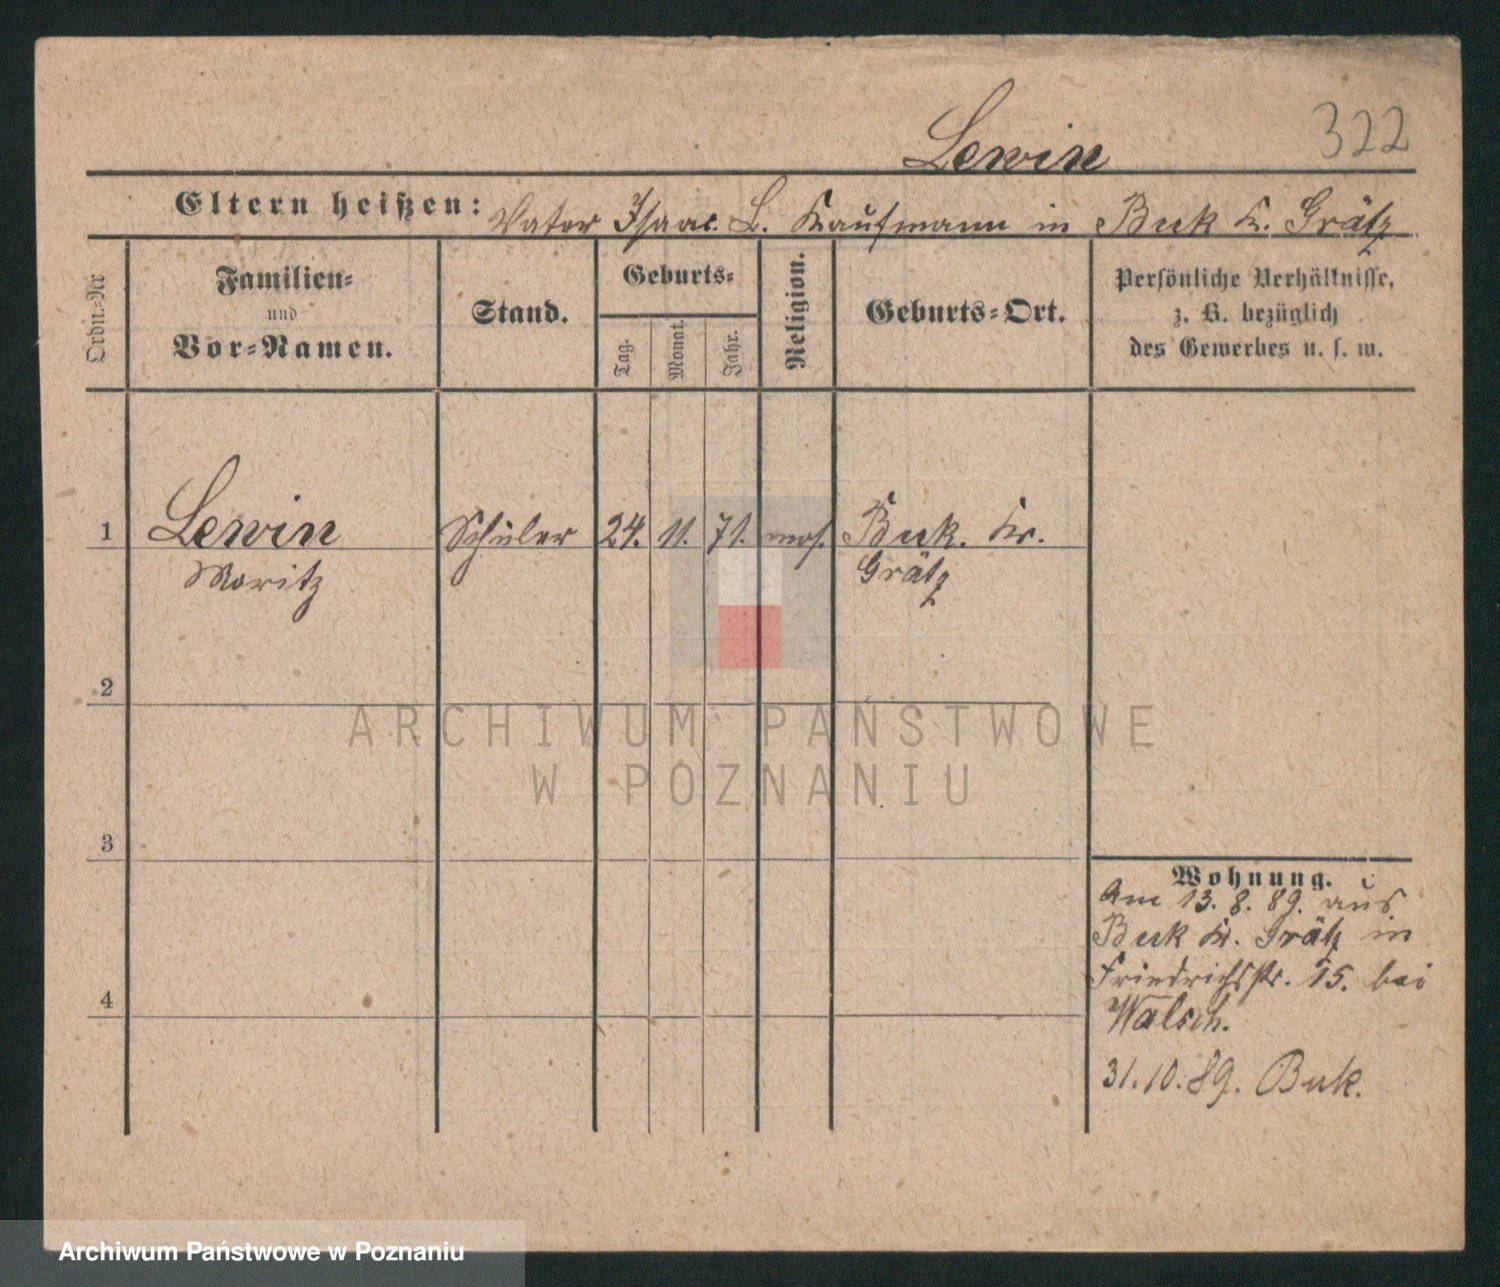 Lewin 322
Eltern heißen: Vater Isaac L. Kaufmann in Buk K. Grätz
Ordn.-Nr
Familien-
und
Vor-Namen.
Stand.
Geburts-
Tag. Monat. Jahr.
Religion.
Geburts-Ort.
Persönliche Verhältnisse,
z. B. bezüglich
des Gewerbes u. s. w.
1 Lewin Schüler 24. 11. 71. mos. Buk. Kr.
Moritz Grätz
2
ARCHIWUM PAŃSTWOWE
W POZNANIU
3
Wohnung.
Am 13. 8. 89. aus
Buk Kr. Grätz in
Friedrichsstr. 15. bei
4
Walsch.
31. 10. 89. Buk.
Archiwum Państwowe w Poznaniu